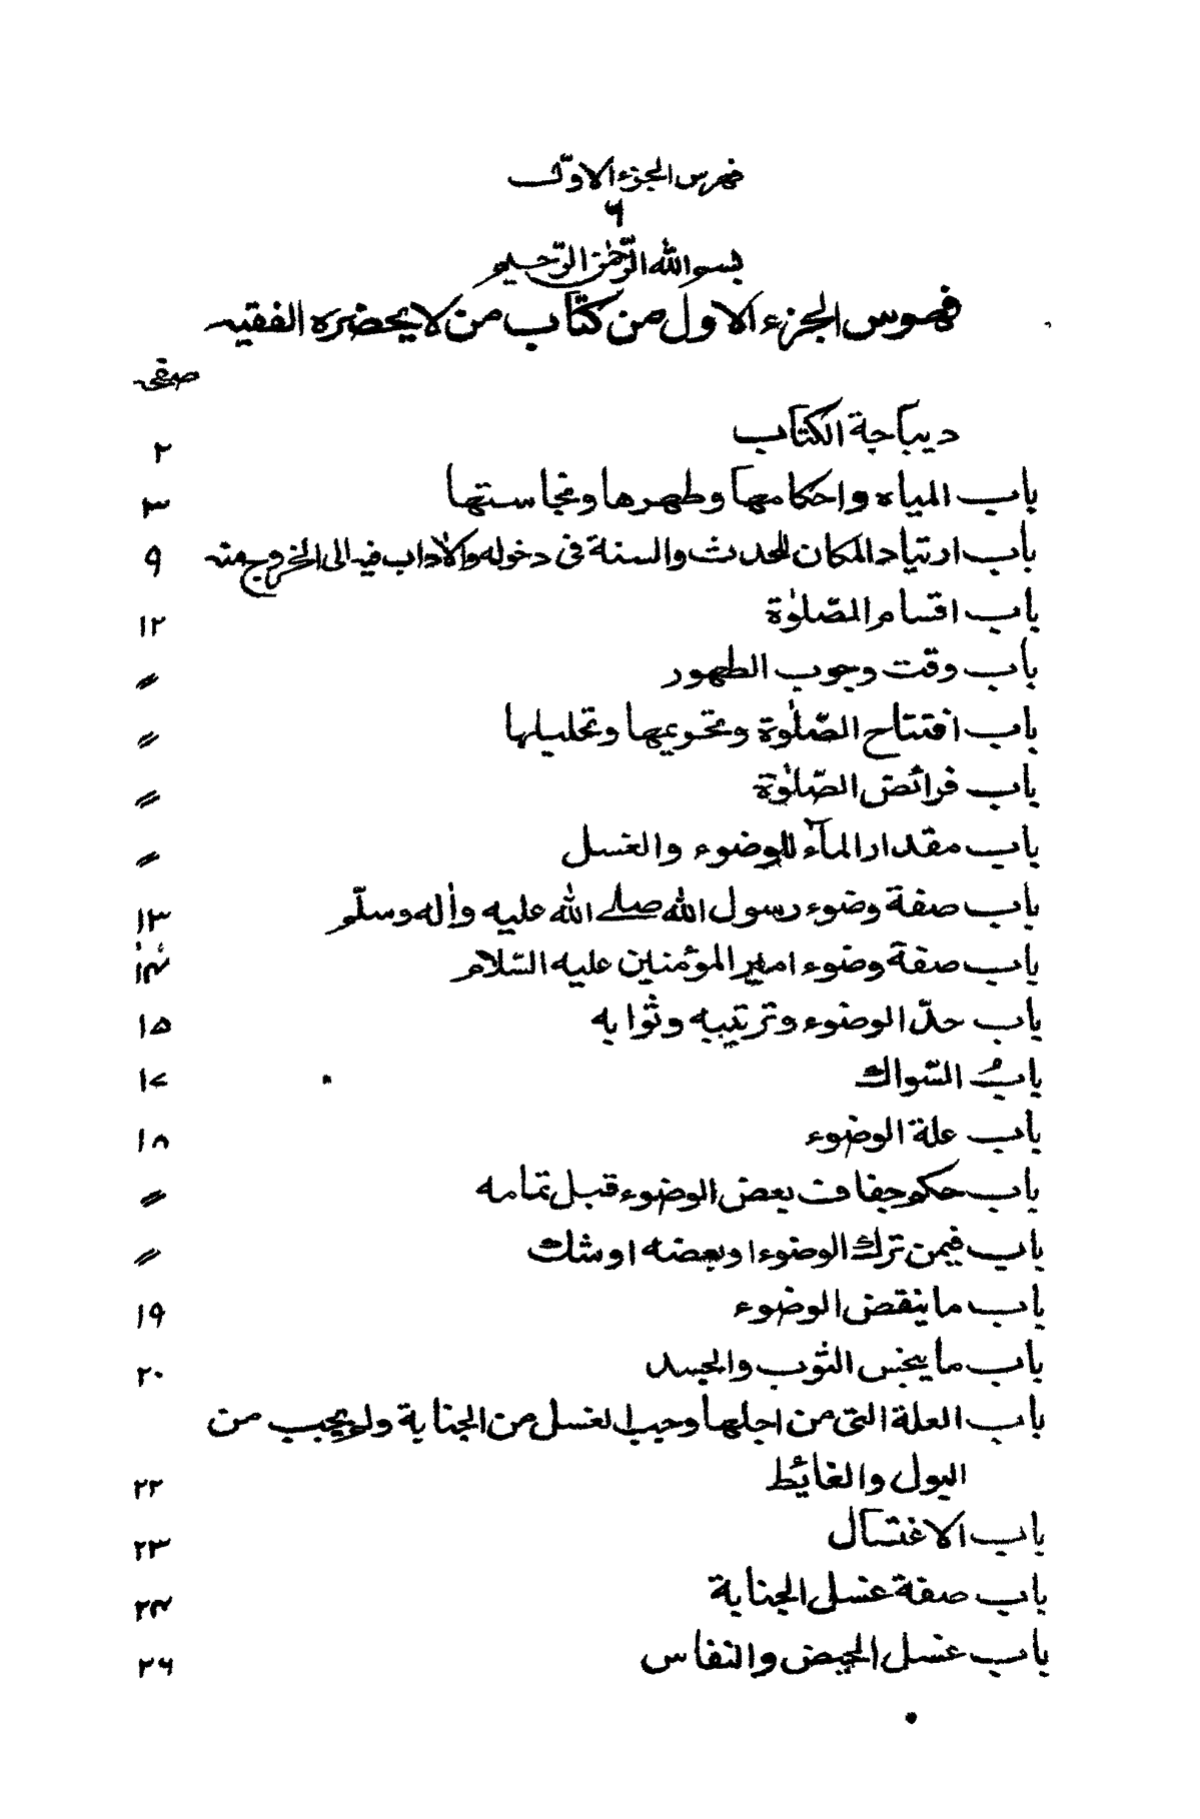 فهرس الجزء الاوّل
٦
بسم الله الرّحمٰن الرّحيم
فهرس الجزء الاول من كتاب من لا يحضره الفقيه
صفحہ
ديباجة الكتاب ٢
باب المياه واحكامها وطهرها ونجاستها ٣
باب ارتياد المكان للحدث والسنة فى دخوله والاٰداب فيه الى الخروج منه ٩
باب اقسام الصّلوٰة ١٢
باب وقت وجوب الطهور 〃
باب افتتاح الصّلوٰة وتحريمها وتحليلها 〃
باب فرائض الصّلوٰة 〃
باب مقدار المآء للوضوء والغسل 〃
باب صفة وضوء رسول الله صلے الله عليه واٰله وسلّم ١٣
باب صفة وضوء امير المؤمنين عليه السّلام ١۴
باب حدّ الوضوء وترتيبه وثوابه ١۵
بابُ السّواك ١٧
باب علة الوضوء ١٨
باب حكم جفاف بعض الوضوء قبل تمامه 〃
باب فيمن ترك الوضوء او بعضه او شك 〃
باب ما ينقض الوضوء ١٩
باب ما ينجس الثوب والجسد ٢٠
باب العلة التى من اجلها وجب الغسل من الجنابة ولم يجب من
البول والغائط ٢٢
باب الاغتسال ٢٣
باب صفة غسل الجنابة ٢۴
باب غسل الحيض والنفاس ٢٦